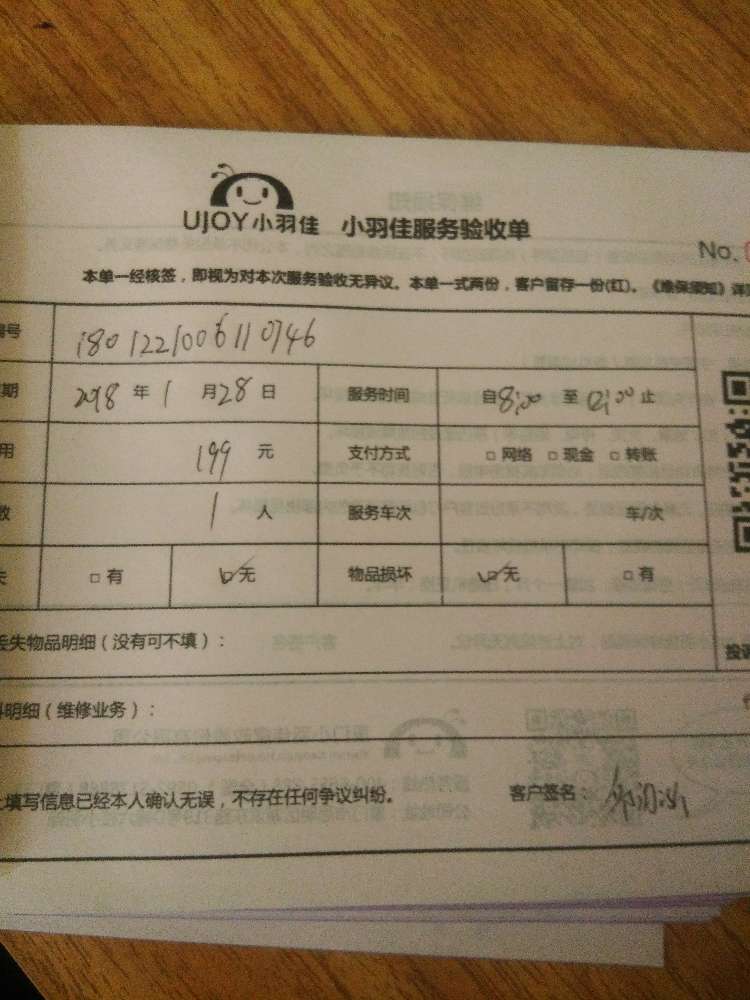 UJOY小羽佳 小羽佳服务验收单
No.
本单一经核签，即视为对本次服务验收无异议。本单一式两份，客户留存一份(红)。《维保须知》详
号 1801221006110746
期 2018年1月28日 服务时间 自8:00至12:00止
用 199元 支付方式 □网络 □现金 □转账
数 1人 服务车次 车/次
失 □有 ☑无 物品损坏 ☑无 □有
丢失物品明细（没有可不填）：
投诉
料明细（维修业务）：
上填写信息已经本人确认无误，不存在任何争议纠纷。 客户签名：